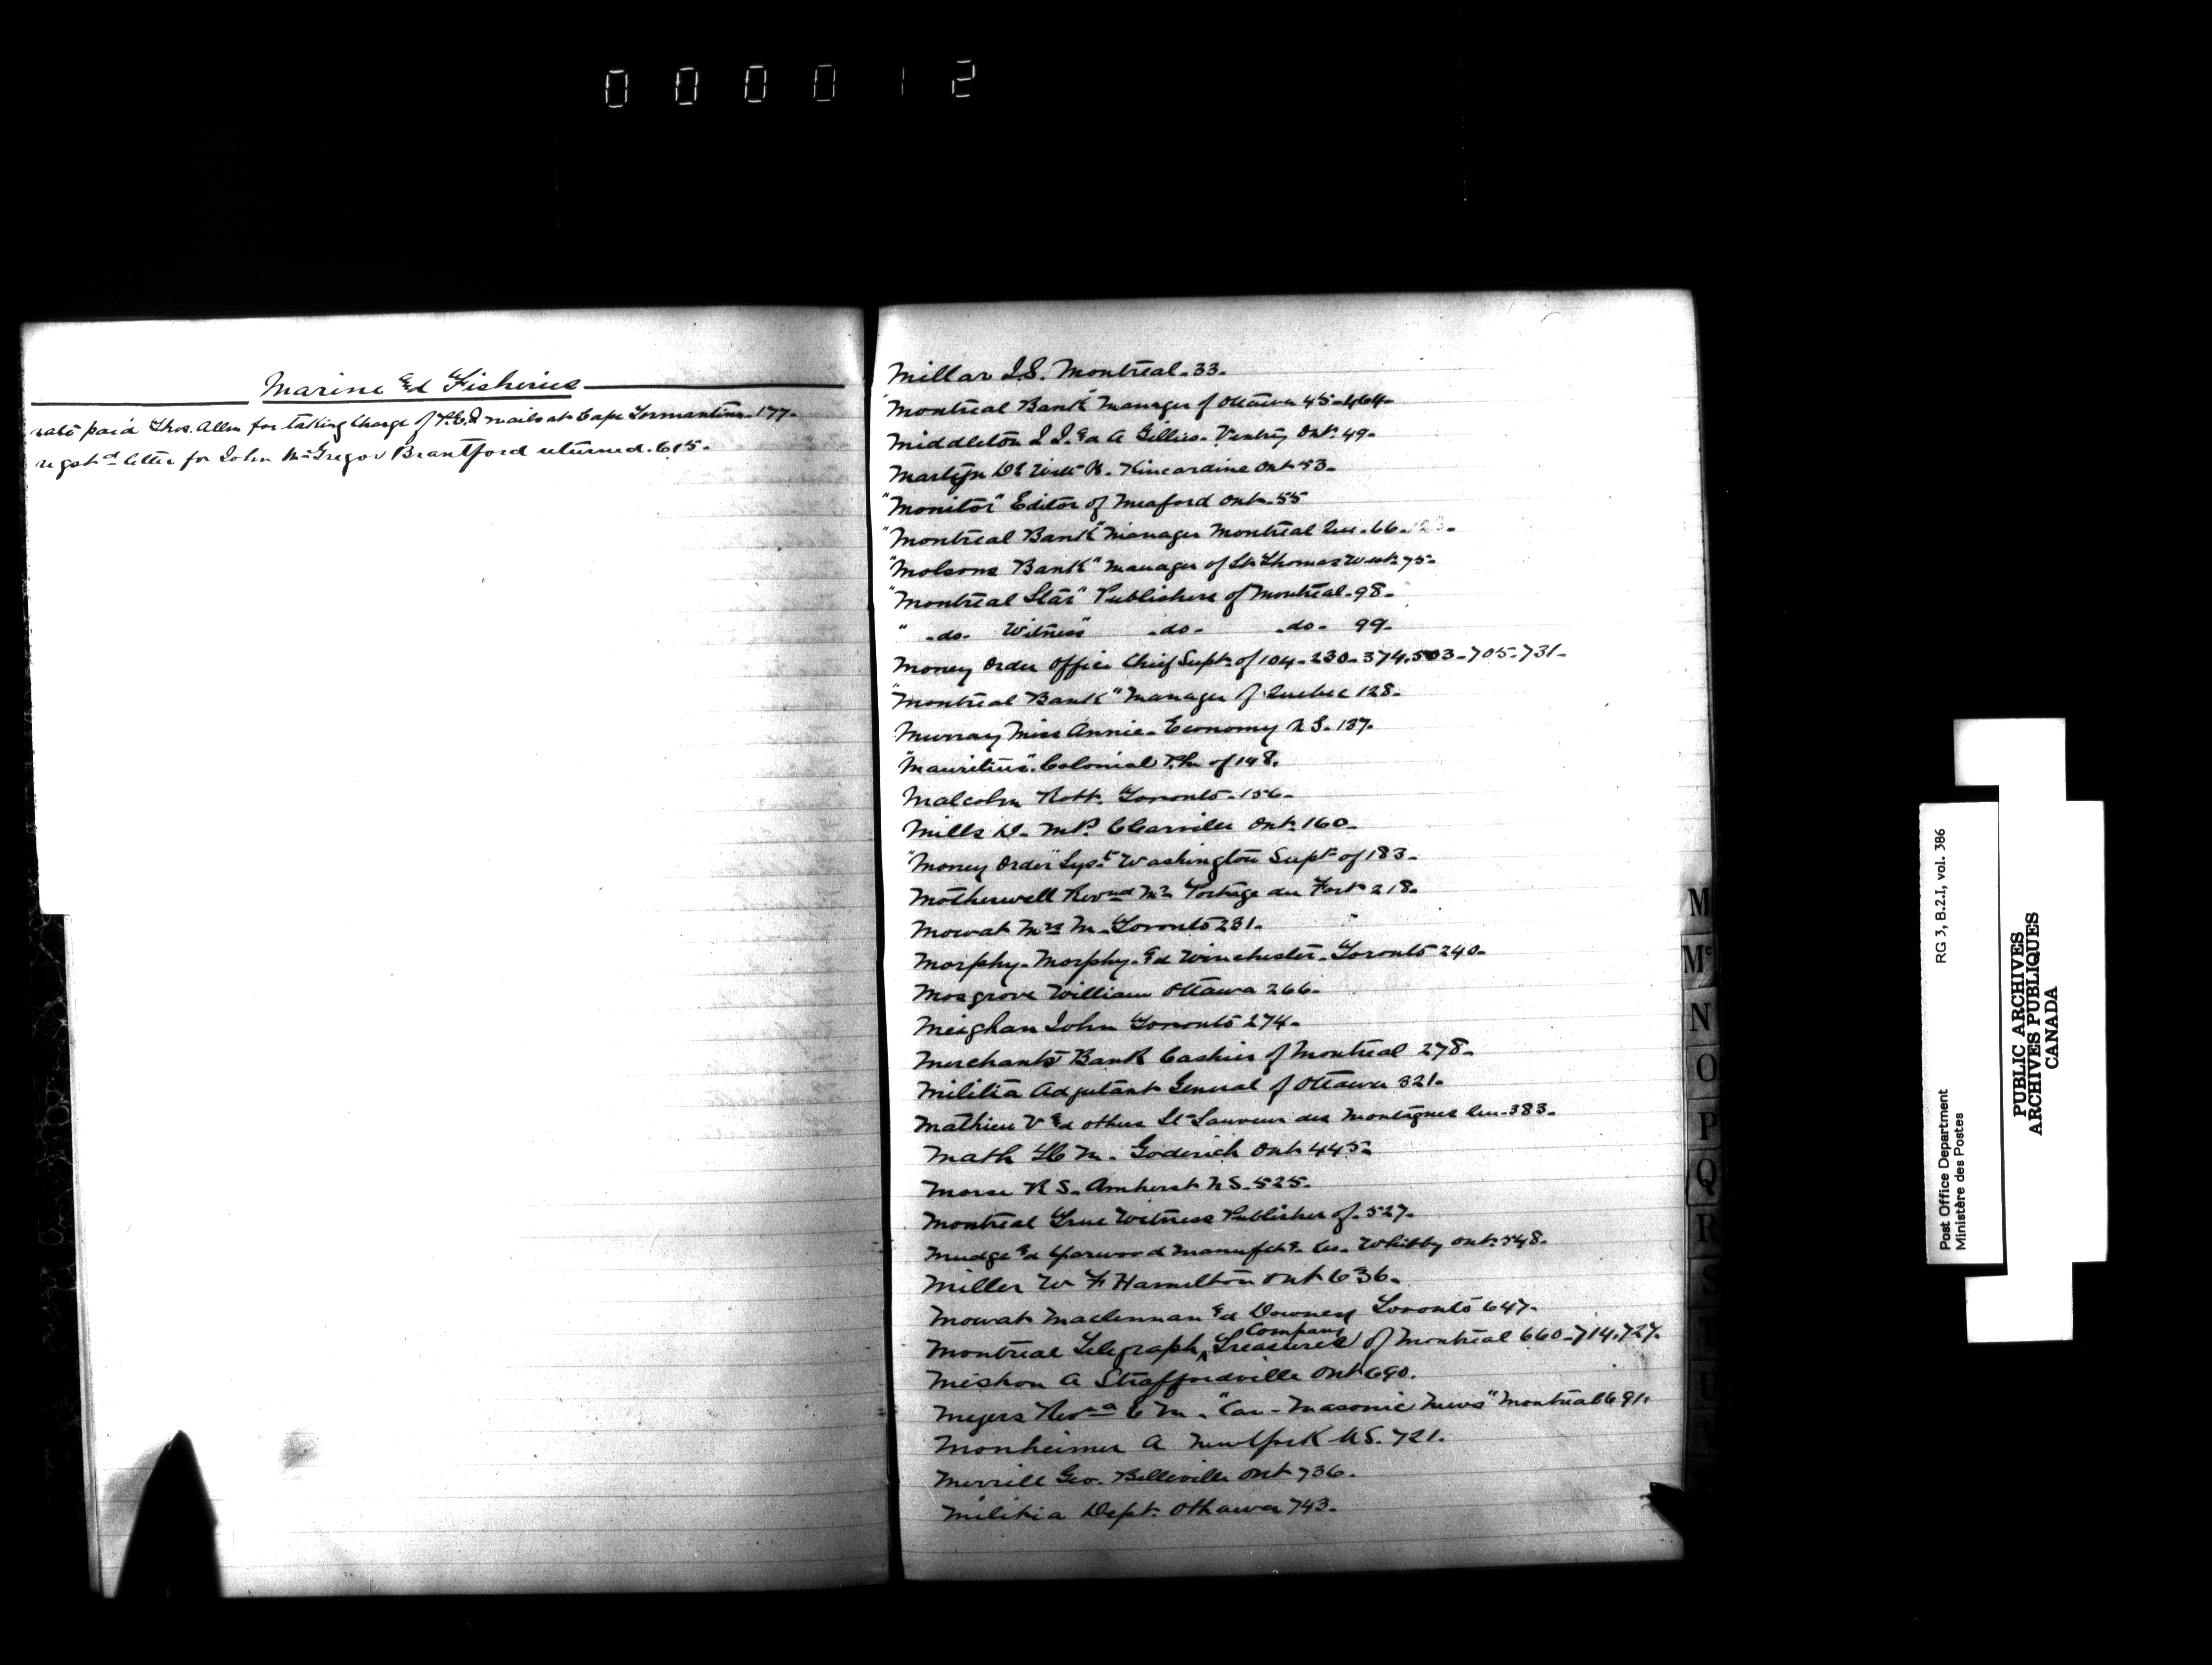 000012
Marine & Fisheries
rate paid Thos. Allen for taking charge of P.E.I mails at Cape Tormentine - 177-
regst'd letter for John McGregor Brantford returned. 615-
Millar J.S. Montreal. 33.
Montreal Bank Manager of Ottawa 45-464-
Middleton J J. & A Gillies. Ventry Ont. 49-
Martyn De Witt H. Kincardine Ont 53-
"Monitor" Editor of Meaford Ont. 55
"Montreal Bank" Manager Montreal Que. 66-
"Molsons Bank" Manager of St. Thomas West. 75-
"Montreal Star" Publishers of Montreal. 98-
" -do- Witness" -do- -do- 99-
Money Order Office Chief Supt. of 104-230-374.503-705-731-
"Montreal Bank" Manager of Quebec 128-
Murray Miss Annie. Economy N.S. 137.
"Mauritius". Colonial P.M. of 148.
Malcolm Robt. Toronto. 156-
Mills D. M.P. Clearville Ont. 160-
"Money Order" Syst. Washington Supt. of 183-
Motherwell Revnd Mr. Portage du Fort 218-
Mowat Mrs M. Toronto 231-
Morphy. Morphy. & Winchester. Toronto 240-
Mosgrove William Ottawa 266-
Meighan John Toronto 274-
Merchants Bank Cashier of Montreal 278-
Militia Adjutant General of Ottawa 321-
Mathieu V & others St Sauveur des Montagnes Que. 383-
Math M. Goderich Ont 445-
Morse R S. Amherst N S. 525-
Montreal True Witness Publisher of. 527-
Mudge & Yarwood Manufct'g Co. Whitby Ont. 548-
Miller W F Hamilton Ont 636-
Mowat Maclennan & Downey Toronto 647-
Montreal Telegraph Company Treasurer of Montreal 660-714.727-
Mishon A Straffordville Ont 690.
Meyers Revd C M. "Can-Masonic News" Montreal 691.
Monheimer A New York U.S. 721.
Merrill Geo. Belleville Ont 736.
Militia Dept. Ottawa 743-
M
Mc
N
O
P
Q
R
S
T
U
Post Office Department
Ministère des Postes
RG 3, B.2.I, vol. 386
PUBLIC ARCHIVES
ARCHIVES PUBLIQUES
CANADA